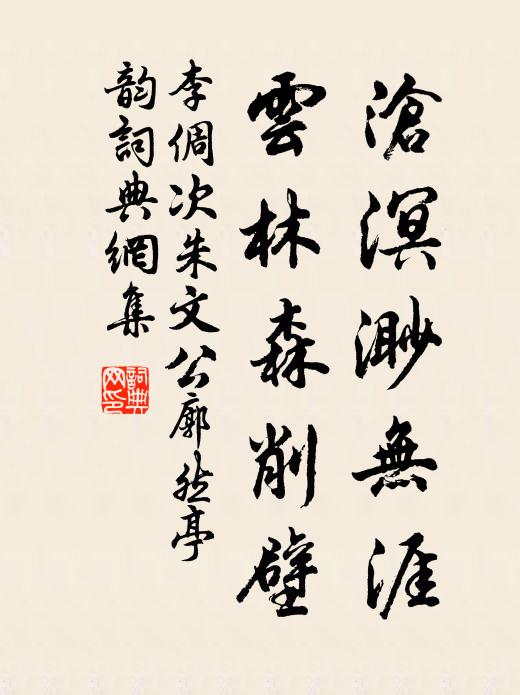 滄溟渺無涯
雲林森削壁
李倜次朱文公廓然亭
韵詞典網集
詞典網印